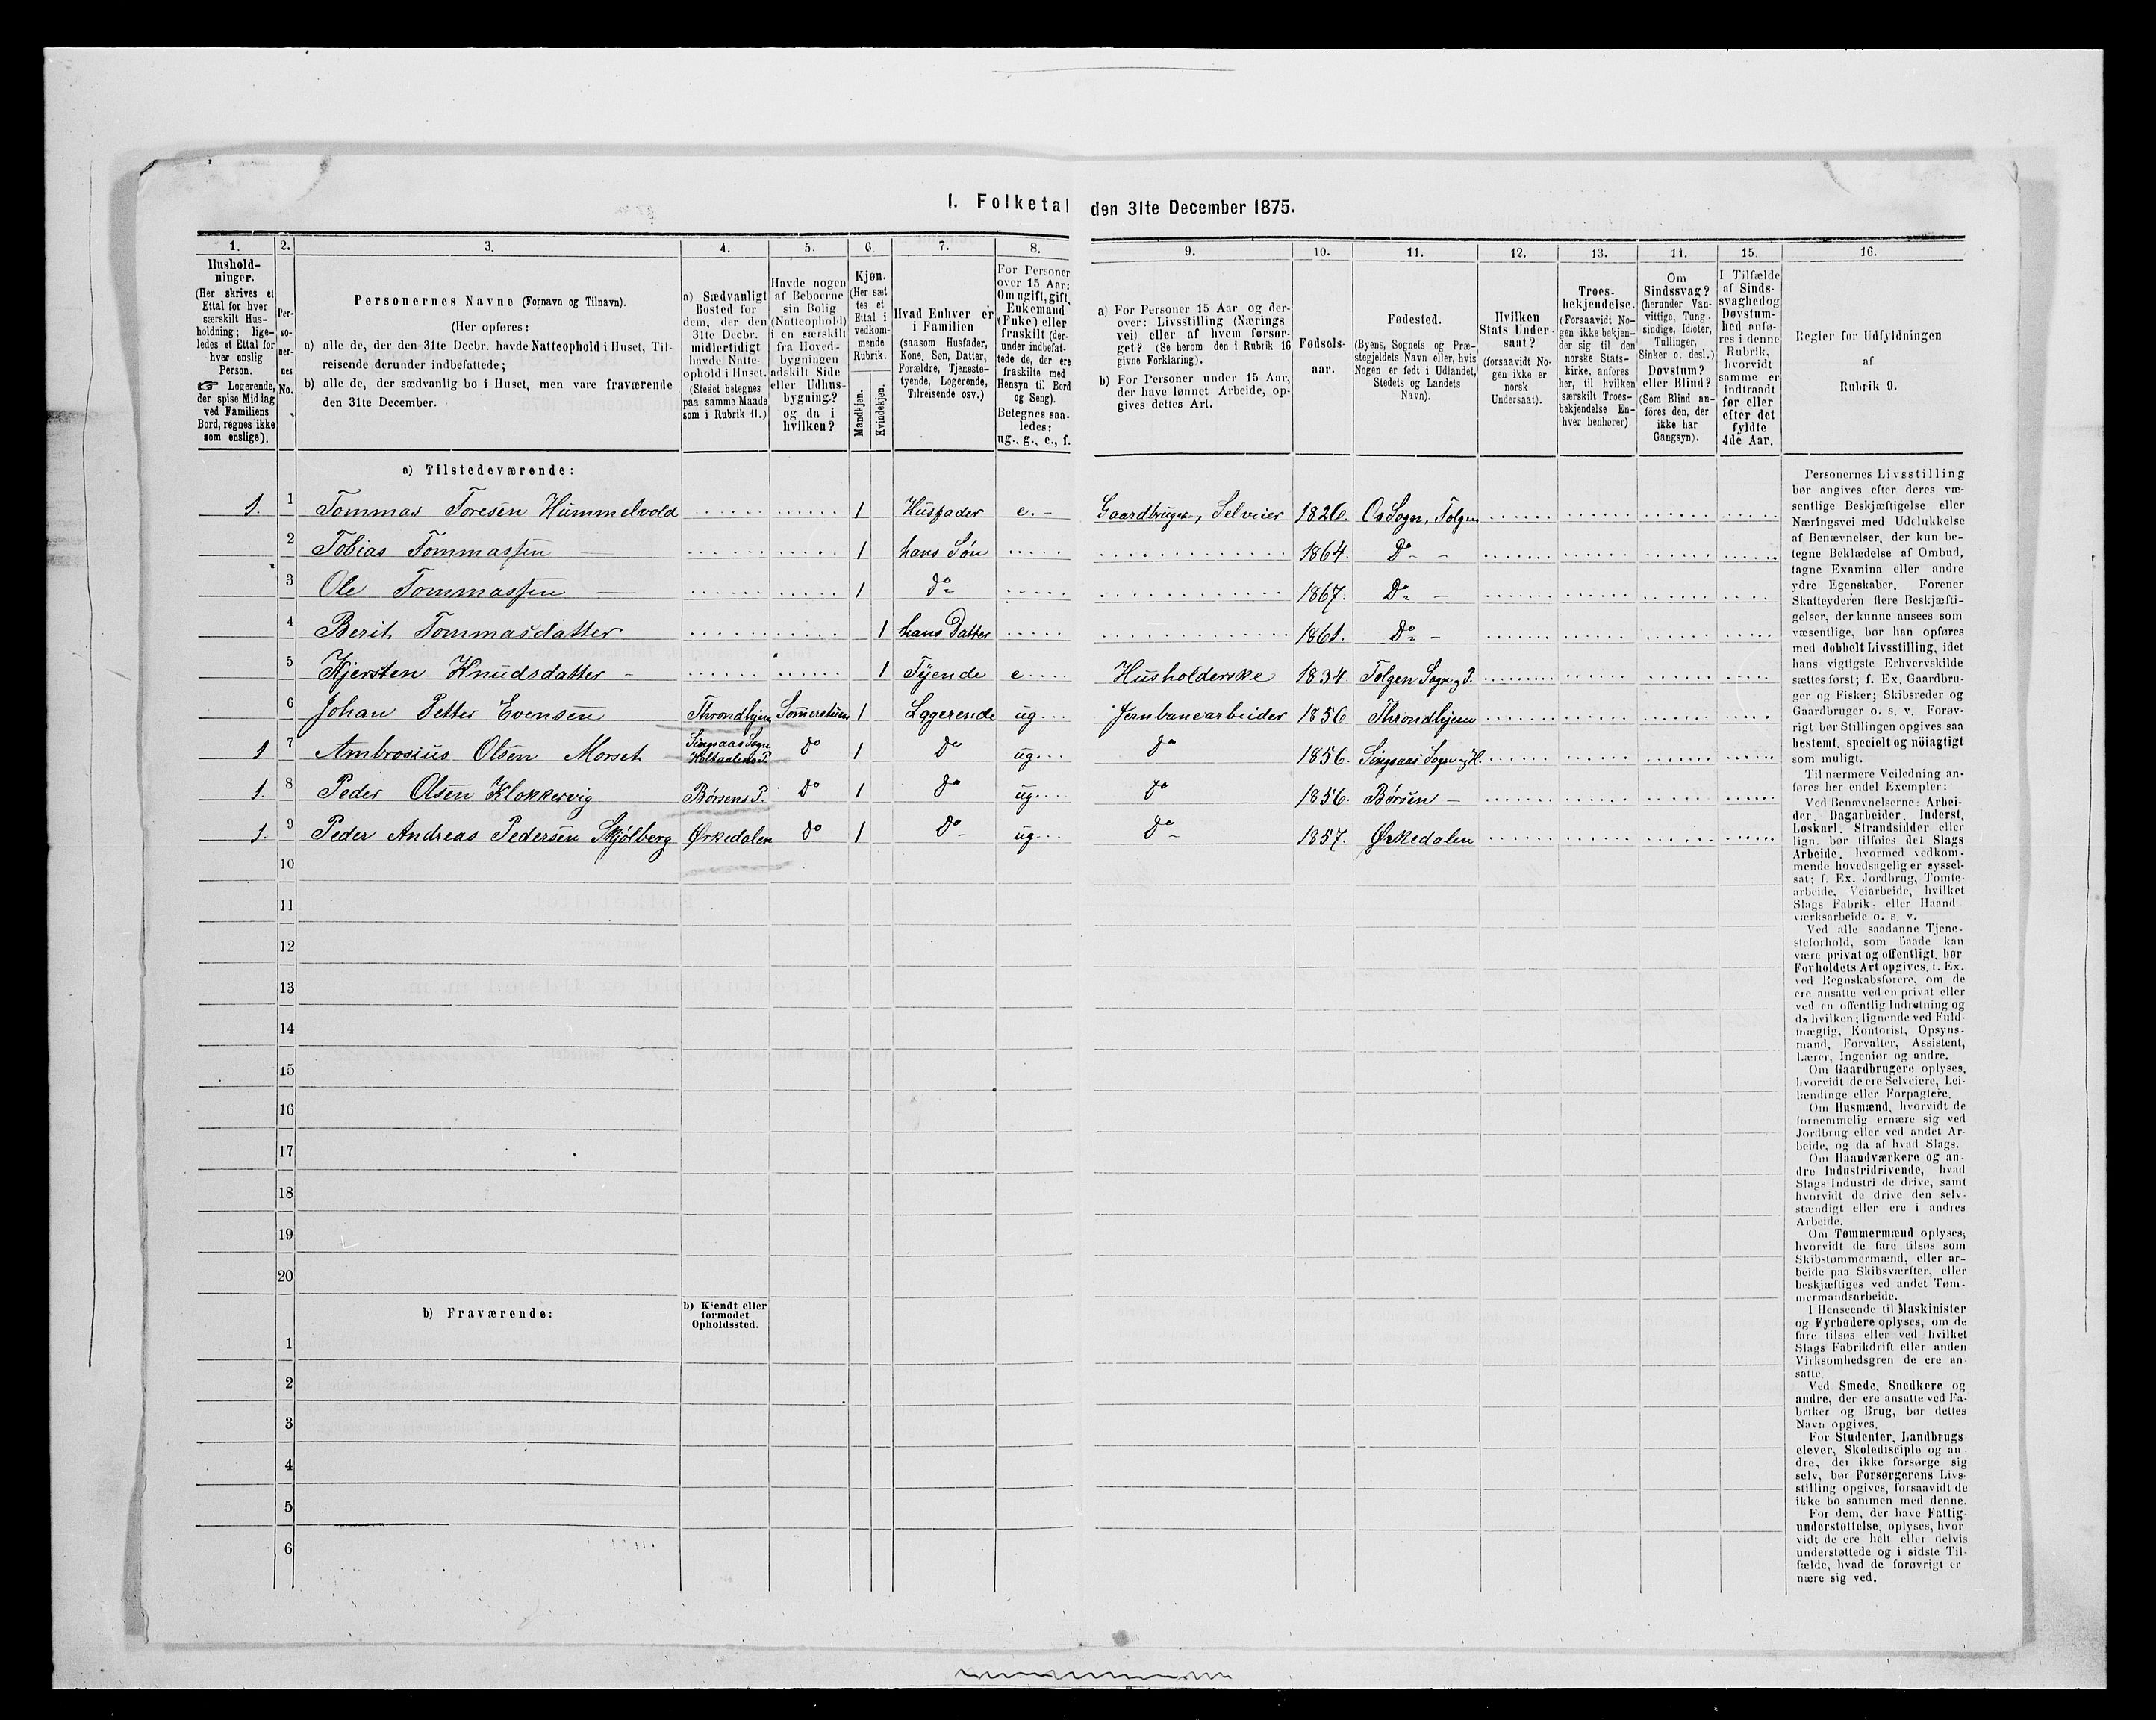 I. Folketal den 31te December 1875.
1. 2. 3. 4. 5. 6. 7. 8. 9. 10. 11. 12. 13. 14. 15. 16.
Hushold-
ninger.
(Her skrives et
Ettal for hver
særskilt Hus-
holdning; lige-
ledes et Ettal for
hver enslig
Person.
☞ Logerende,
der spise Middag
ved Familiens
Bord, regnes ikke
som enslige).
Per-
so-
ner-
nes
No.
Personernes Navne (Fornavn og Tilnavn).
(Her opføres:
a) alle de, der den 31te Decbr. havde Natteophold i Huset, Til-
reisende derunder indbefattede;
b) alle de, der sædvanlig bo i Huset, men vare fraværende
den 31te December.
a) Sædvanligt
Bosted for
dem, der den
31te Decbr.
midlertidigt
havde Natte-
ophold i Huset.
(Stedet betegnes
paa samme Maade
som i Rubrik 11.)
Havde nogen
af Beboerne
sin Bolig
(Natteophold)
i en særskilt
fra Hoved-
bygningen
adskilt Side
eller Udhus-
bygning?
og da i
hvilken?
Kjøn.
(Her sæt
tes et
Ettal i
vedkom-
mende
Rubrik.
Mandkjøn.
Kvindekjøn.
Hvad Enhver er
i Familien
(saasom Husfader,
Kone, Søn, Datter,
Forældre, Tjeneste-
tyende, Logerende,
Tilreisende osv.)
For Personer
over 15 Aar:
Om ugift, gift,
Enkemand
(Enke) eller
fraskilt (der-
under indbefat-
tede de, der ere
fraskilte med
Hensyn til Bord
og Seng).
Betegnes saa-
ledes:
ug., g., e., f.
a) For Personer 15 Aar og der-
over: Livsstilling (Nærings
vei) eller af hvem forsør-
get? (Se herom den i Rubrik 16
givne Forklaring).
b) For Personer under 15 Aar,
der have lønnet Arbeide, op-
gives dettes Art.
Fødsels-
aar.
Fødested.
(Byens, Sognets og Præ-
stegjeldets Navn eller, hvis
Nogen er født i Udlandet,
Stedets og Landets
Navn).
Hvilken
Stats Under-
saat?
(forsaavidt No-
gen ikke er
norsk
Undersaat).
Troes-
bekjendelse.
(Forsaavidt No-
gen ikke bekjen-
der sig til den
norske Stats-
kirke, anføres
her, til hvilken
særskilt Troes-
bekjendelse En-
hver henhører).
Om
Sindssvag?
(herunder Van-
vittige, Tung-
sindige, Idioter,
Tullinger,
Sinker o. desl.)
Døvstum?
eller Blind?
(Som Blind an-
føres den, der
ikke har
Gangsyn).
I Tilfælde
af Sinds-
svaghed og
Døvstum-
hed anfø-
res i denne
Rubrik,
hvorvidt
samme er
indtraadt
før eller
efter det
fyldte
4de Aar.
Regler for Udfyldningen
af
Rubrik 9.
a) Tilstedeværende:
1. 1 Tommas Toresen Hummelvold 1 Husfader e. - Gaardbruger, Selveier 1826. Os Sogn, Tolgen
2 Tobias Tommassen 1 hans Søn 1864. Do -
3 Ole Tommassen 1 do 1867. Do -
4 Berit Tommasdatter 1 hans Datter 1861. Do -
5 Kjersten Knudsdatter 1 Tyende e Husholderske 1834. Tolgen Sogn og P.
6 Johan Petter Evensen Throndhjem 1 Logerende ug Jernbanearbeider 1856 Throndhjem
1 7 Ambrosius Olsen Morset Singsaas Sogn Holtaalens P. do 1 Do ug do 1856. Singsaas Sogn og H.
1. 8 Peder Olsen Klokkervig Børsens P. Do 1 do ug do 1856. Børsen -
1. 9 Peder Andreas Pedersen Skjølberg Ørkedalen do 1 Do ug Do 1857. Ørkedalen
10
11
12
13
14
15
16
17
18
19
20
b) Fraværende:
b) Kjendt eller
formodet
Opholdssted.
1
2
3
4
5
6
Personernes Livsstilling
bør angives efter deres væ-
sentlige Beskjæftigelse eller
Næringsvei med Udelukkelse
af Benævnelser, der kun be-
tegne Beklædelse af Ombud,
tagne Examina eller andre
ydre Egenskaber. Forener
Skatteyderen flere Beskjæfti-
gelser, der kunne ansees som
væsentlige, bør han opføres
med dobbelt Livsstilling, idet
hans vigtigste Erhvervskilde
sættes først; f. Ex. Gaardbru-
ger og Fisker; Skibsreder og
Gaardbruger o. s. v. Forøv-
rigt bør Stillingen opgives saa
bestemt, specielt og nöiagtigt
som muligt.
Til nærmere Veiledning an-
føres her endel Exempler:
Ved Benævnelserne: Arbei-
der, Dagarbeider, Inderst,
Løskarl, Strandsidder eller
lign. bør tilføies det Slags
Arbeide, hvormed vedkom-
mende hovedsagelig er syssel-
sat; f. Ex. Jordbrug, Tomte-
arbeide, Veiarbeide, hvilket
Slags Fabrik- eller Haand-
værksarbeide o. s. v.
Ved alle saadanne Tjene-
steforhold, som baade kan
være privat og offentligt, bør
Forholdets Art opgives, f. Ex.
ved Regnskabsførere, om de
ere ansatte ved en privat eller
ved en offentlig Indretning og
da hvilken; lignende ved Fuld-
mægtig, Kontorist, Opsyns-
mand, Forvalter, Assistent,
Lærer, Ingeniør og andre.
Om Gaardbrugere oplyses,
hvorvidt de ere Selveiere, Lei-
lændinge eller Forpagtere.
Om Husmænd, hvorvidt de
fornemmelig ernære sig ved
Jordbrug eller ved andet Ar-
beide, og da af hvad Slags.
Om Haandværkere og an-
dre Industridrivende, hvad
Slags Industri de drive, samt
hvorvidt de drive den selv-
stændigt eller ere i andres
Arbeide.
Om Tømmermænd oplyses,
hvorvidt de fare tilsøs som
Skibstømmermænd, eller ar-
beide paa Skibsværfter, eller
beskjæftiges ved andet Tøm-
mermandsarbeide.
I Henseende til Maskinister
og Fyrbødere oplyses, om de
fare tilsøs eller ved hvilket
Slags Fabrikdrift eller anden
Virksomhedsgren de ere an-
satte.
Ved Smede, Snedkere og
andre, der ere ansatte ved Fa-
briker og Brug, bør dettes
Navn opgives.
For Studenter, Landbrugs-
elever, Skoledisciple og an-
dre, der ikke forsørge sig
selv, bør Forsørgerens Livs-
stilling opgives, forsaavidt de
ikke bo sammen med denne.
For dem, der have Fattig-
understøttelse, oplyses, hvor-
vidt de ere helt eller delvis
understøttede og i sidste Til-
fælde, hvad de forøvrigt er-
nære sig ved.